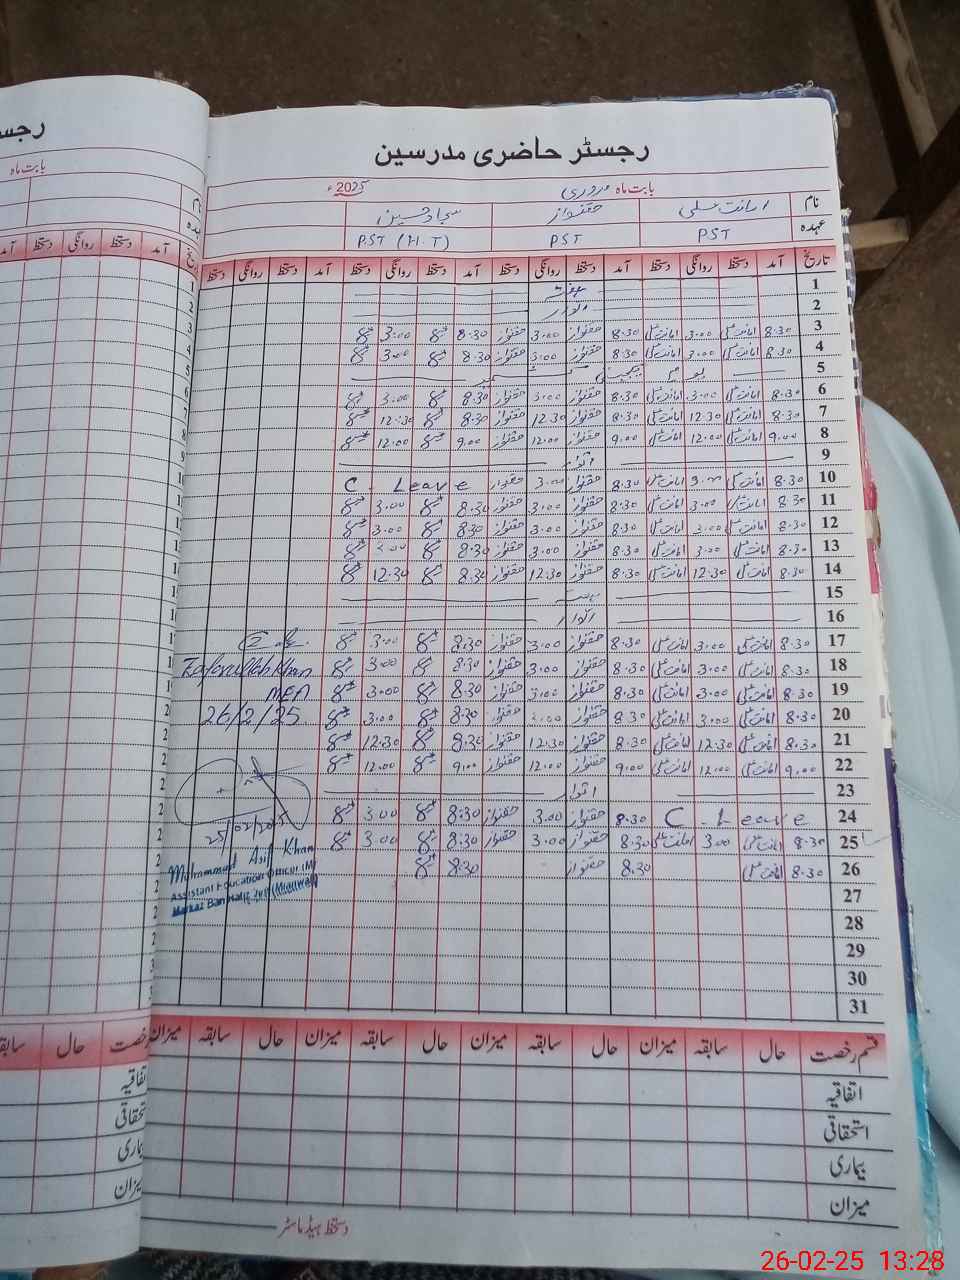 رجسٹر حاضری مدرسین
بابت ماہ فروری 2025ء
نام امانت علی حقنواز سجاد حسین
عہدہ PST PST PST (H.T)
تاریخ آمد دستخط روانگی دستخط آمد دستخط روانگی دستخط آمد دستخط روانگی دستخط آمد دستخط روانگی دستخط
1 ہفتہ
2 اتوار
3 8.30 امانت علی 3.00 امانت علی 8.30 حقنواز 3.00 حقنواز 8.30 3.00
4 8.30 امانت علی 3.00 امانت علی 8.30 حقنواز 3.00 حقنواز 8.30 3.00
5 یوم یکجہتی کشمیر
6 8.30 امانت علی 3.00 امانت علی 8.30 حقنواز 3.00 حقنواز 8.30 3.00
7 8.30 امانت علی 12.30 امانت علی 8.30 حقنواز 12.30 حقنواز 8.30 12.30
8 9.00 امانت علی 12.00 امانت علی 9.00 حقنواز 12.00 حقنواز 9.00 12.00
9 اتوار
10 8.30 امانت علی 3.00 امانت علی 8.30 حقنواز 3.00 حقنواز C. Leave
11 8.30 امانت علی 3.00 امانت علی 8.30 حقنواز 3.00 حقنواز 8.30 3.00
12 8.30 امانت علی 3.00 امانت علی 8.30 حقنواز 3.00 حقنواز 8.30 3.00
13 8.30 امانت علی 3.00 امانت علی 8.30 حقنواز 3.00 حقنواز 8.30 3.00
14 8.30 امانت علی 12.30 امانت علی 8.30 حقنواز 12.30 حقنواز 8.30 12.30
15
16 اتوار
17 8.30 امانت علی 3.00 امانت علی 8.30 حقنواز 3.00 حقنواز 8.30 3.00
18 8.30 امانت علی 3.00 امانت علی 8.30 حقنواز 3.00 حقنواز 8.30 3.00 Zafarullah Khan
19 8.30 امانت علی 3.00 امانت علی 8.30 حقنواز 3.00 حقنواز 8.30 3.00 MEA
20 8.30 امانت علی 3.00 امانت علی 8.30 حقنواز 3.00 حقنواز 8.30 3.00 26/2/25
21 8.30 امانت علی 12.30 امانت علی 8.30 حقنواز 12.30 حقنواز 8.30 12.30
22 9.00 امانت علی 12.00 امانت علی 9.00 حقنواز 12.00 حقنواز 9.00 12.00
23 اتوار
24 C. Leave 8.30 حقنواز 3.00 حقنواز 8.30 3.00
25 8.30 امانت علی 3.00 امانت علی 8.30 حقنواز 3.00 حقنواز 8.30 3.00 25/02/2025
26 8.30 امانت علی 8.30 حقنواز 8.30
Mohammad Asif Khan
Assistant Education Officer (M)
Markaz Ban Hafiz
27
28
29
30
31
قسم رخصت حال سابقہ میزان حال سابقہ میزان حال سابقہ میزان حال سابقہ میزان
اتفاقیہ
استحقاقی
بیماری
میزان
دستخط ہیڈ ماسٹر
26-02-25 13:28